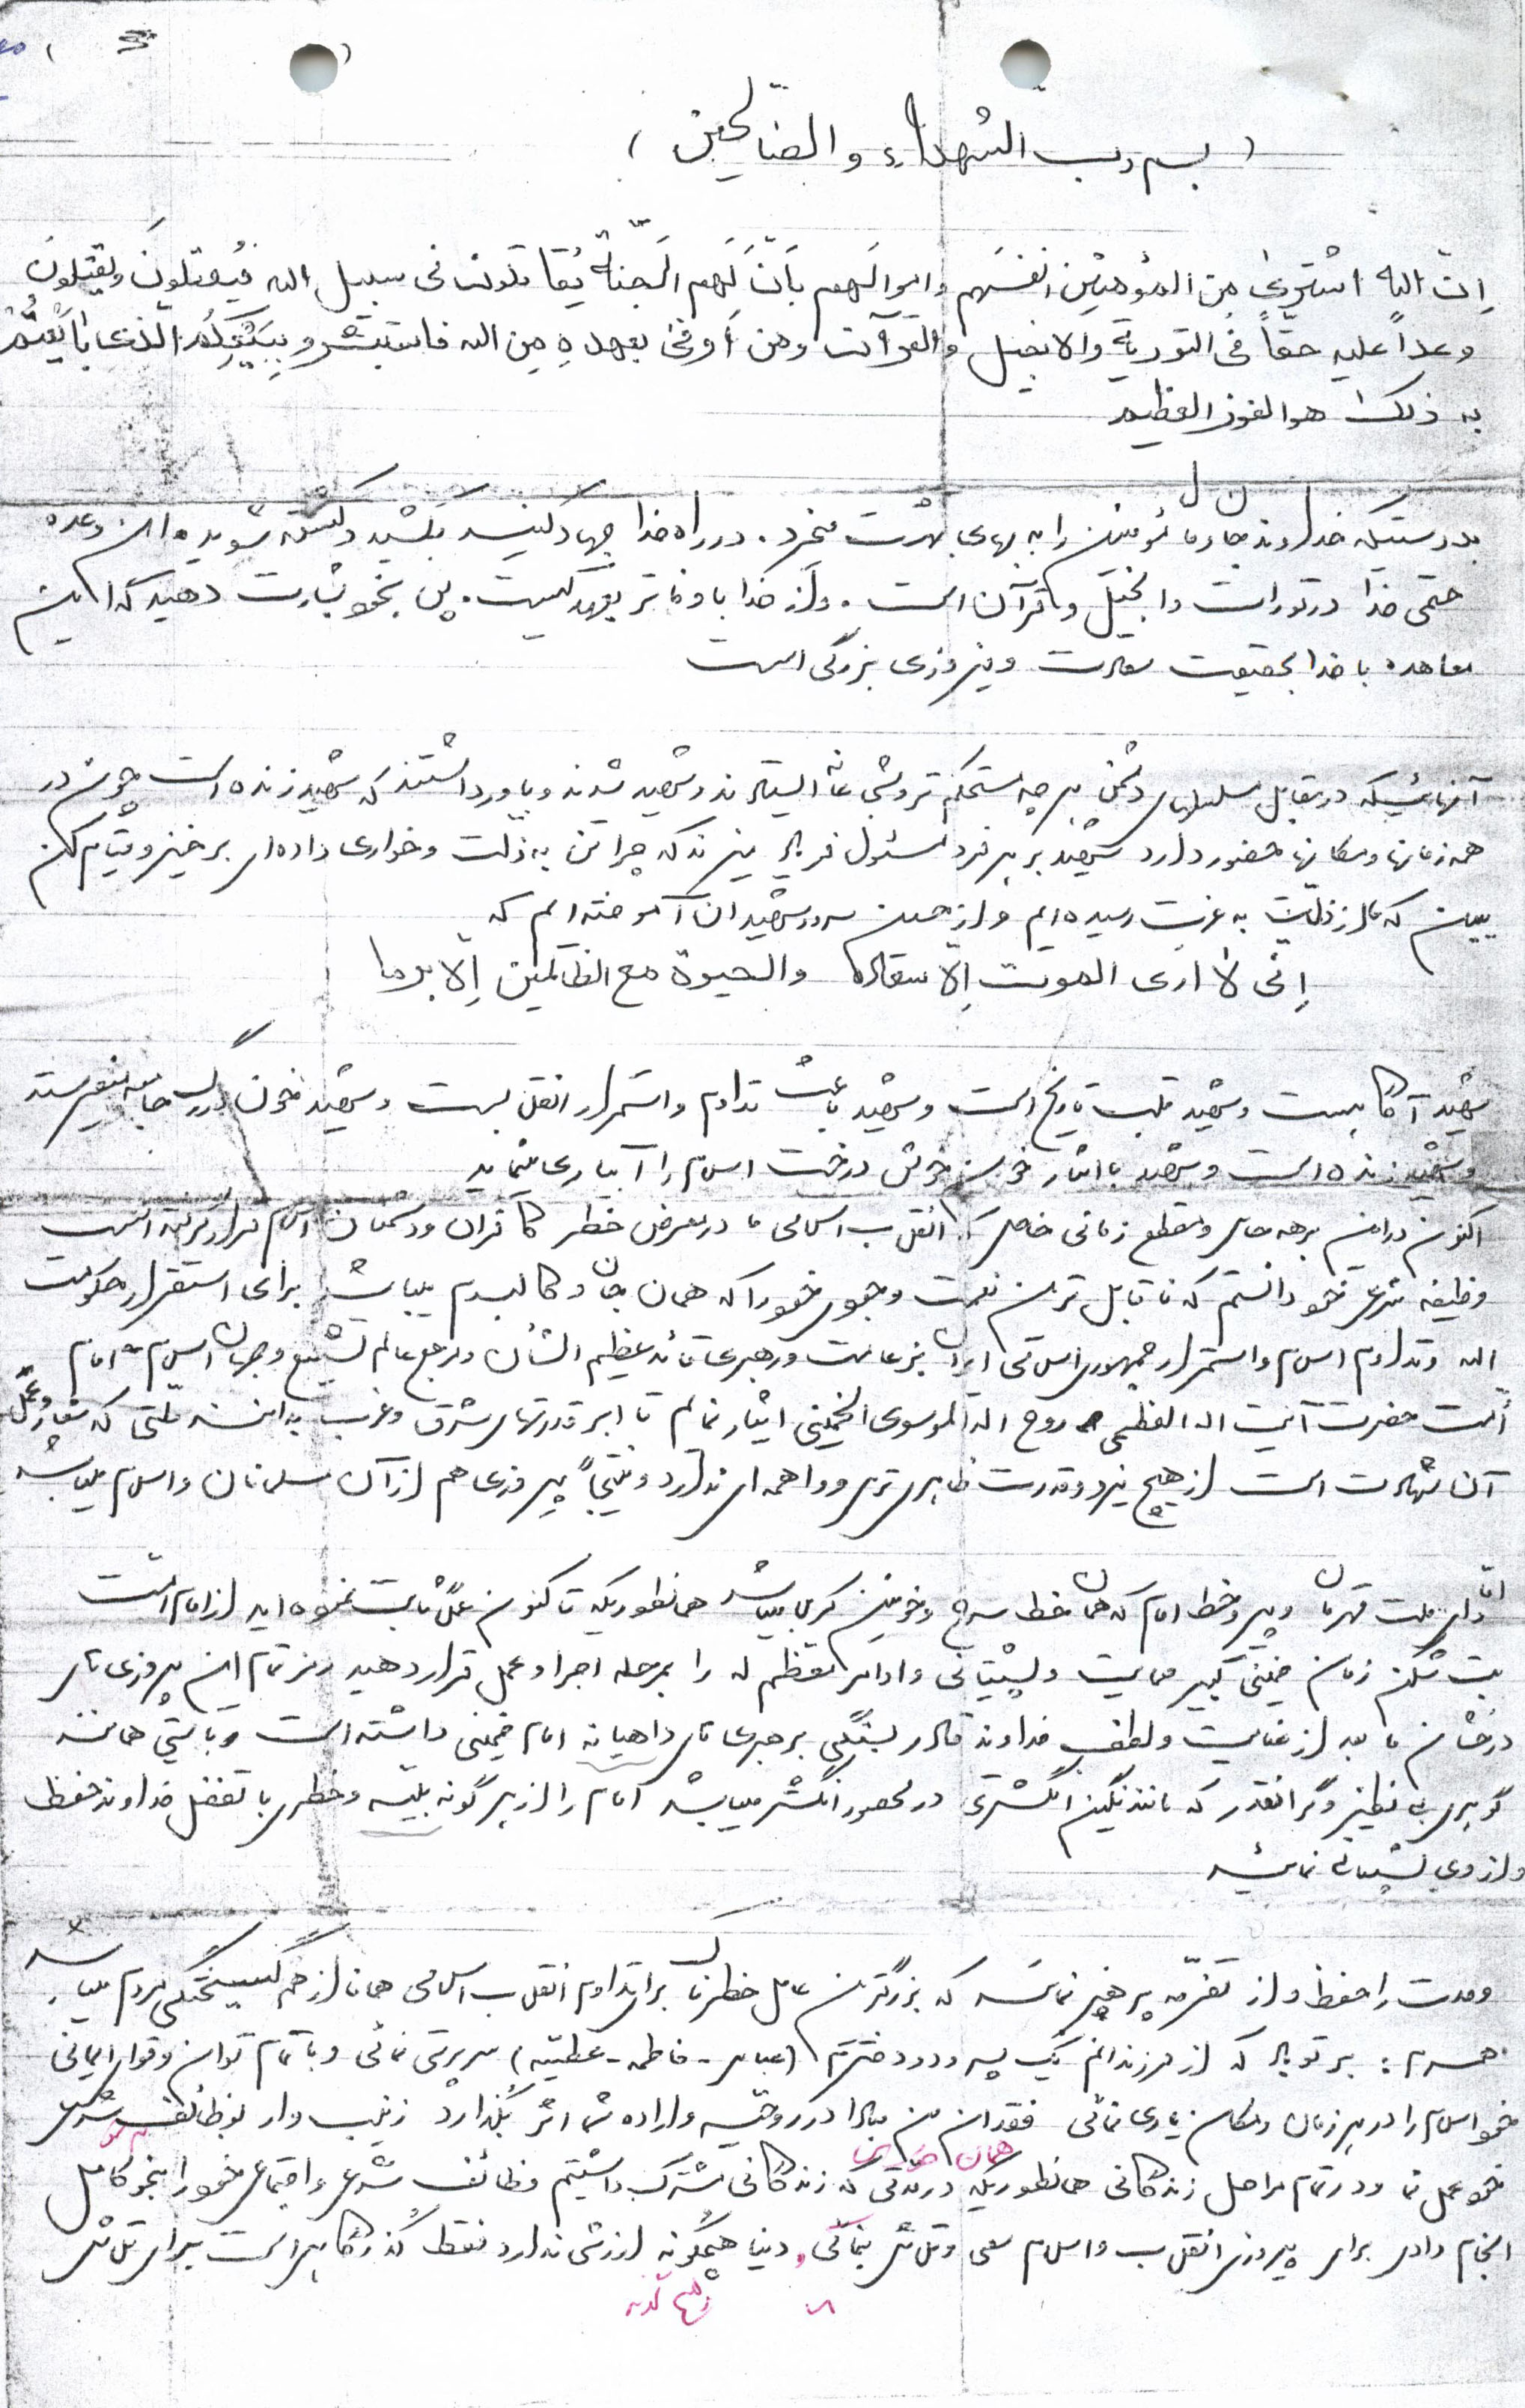 ( بسم رب الشهداء و الصالحین )
اِنّ الله اشتری مِن المؤمنین اَنفسَهم و اموالَهم بِاَنّ لَهم الجَنّةَ یُقاتلون فی سبیل الله فیَُقتلونَ و یُقتَلون
وعداً علیه حقاً فی التوریةِ والانجیل والقرآن و من اَوفی بعهدهِ مِن الله فاستبشرو بِبَیعِکُم الذی بایَعتُم
به ذلک هو الفوز العظیم
بدرستیکه خداوند جان و مال مؤمنین را به بهای بهشت میخرد. در راه خدا جهاد کنید بکشید و کشته شوید این وعده
حتمی خدا در تورات و انجیل و قرآن است. و از خدا با وفاتر بعهد کیست. پس بخود بشارت دهید که این
معاهده با خدا بحقیقت سعادت و پیروزی بزرگی است
آنهائیکه در مقابل سلسلهای دشمن هر چه مستحکم‌تر و شجاعانه ایستادند و شهید شدند و باور داشتند که شهید زنده است چون در
همه زمانها و مکانها حضور دارد شهید بر هر فرد مسئول فریاد میزند که چرا تن به ذلت و خواری داده‌ای برخیز و قیام کن
ببین که ما از ذلت به عزت رسیده‌ایم و از حسین سرور شهیدان آموخته‌ایم که
اِنی لا اَری الموت اِلا سعادة والحیوة مع الظالمین اِلا برما
شهید آگاه است و شهید قلب تاریخ است و شهید باعث تداوم و استمرار انقلابست و شهید خون در رگ جامعه میفرستد
و شهید زنده است و شهید با ایثار خون خویش درخت اسلام را آبیاری مینماید
اکنون در این برهه حساس و مقطع زمانی خاص که انقلاب اسلامی ما در معرض خطر کافران و دشمنان اسلام قرار گرفته است
وظیفه شرعی خود دانستم که ناقابل ترین نعمت وجودی خود را که همان جان و کالبدم میباشد برای استقرار حکومت
الله و تداوم اسلام و استمرار جمهوری اسلامی ایران بزعامت و رهبری قائد عظیم الشأن و مرجع عالم تشیع و جهان اسلام امام
اُمت حضرت آیت الله العظمی روح الله الموسوی الخمینی ایثار نمایم تا ابر قدرتهای شرق و غرب بدانند ملتی که شعار و عمل
آن شهادت است از هیچ نیرو و قدرت ظاهری ترس و واهمه‌ای ندارد و نتیجاً پیروزی هم از آن مسلمانان و اسلام میباشد
امّا ای ملت قهرمان و پیرو خط امام که همان خط سرخ و خونین کربلا میباشد همانطوریکه تا کنون عملاً ثابت نموده‌اید از امام امت
بت شکن زمان خمینی کبیر حمایت و پشتیبانی و اوامر معظم له را بمرحله اجرا و عمل قرار دهید رمز تمام این پیروزی های
درخشان ما بعد از عنایت و لطف خداوند قادر بستگی برهبری های داهیانه امام خمینی داشته است و بایستی همانند
گوهری بی نظیر و گرانقدر که مانند نگین انگشتری در محصور انگشتر میباشد امام را از هر گونه بلیه و خطر با تفضل خداوند حفظ
و از وی پشتیبانی نمائید
وحدت را حفظ و از تفرقه پرهیز نمائید که بزرگترین عامل خطرناک برای تداوم انقلاب اسلامی همانا از هم گسیختگی مردم میباشد
همسرم : بر تو باد که از فرزندانم یک پسر و دو دخترم (عباس - فاطمه - عطیه) سرپرستی نمائی و با تمام توان و قوای ایمانی
خود اسلام را در هر زمان و مکان یاری نمائی فقدان من مبادا در روحیه و اراده شما اثر بگذارد زینب وار بوظائف شرعی
خود عمل نما و در تمام مراحل زندگانی همانطوریکه در مدتی که زندگانی مشترک داشتیم وظائف شرعی و اجتماعی خود را بنحو کامل
انجام دادی برای پیروزی انقلاب و اسلام سعی و تلاش بنمائی. دنیا هیچگونه ارزشی ندارد فقط گذرگاهی است برای تلاش